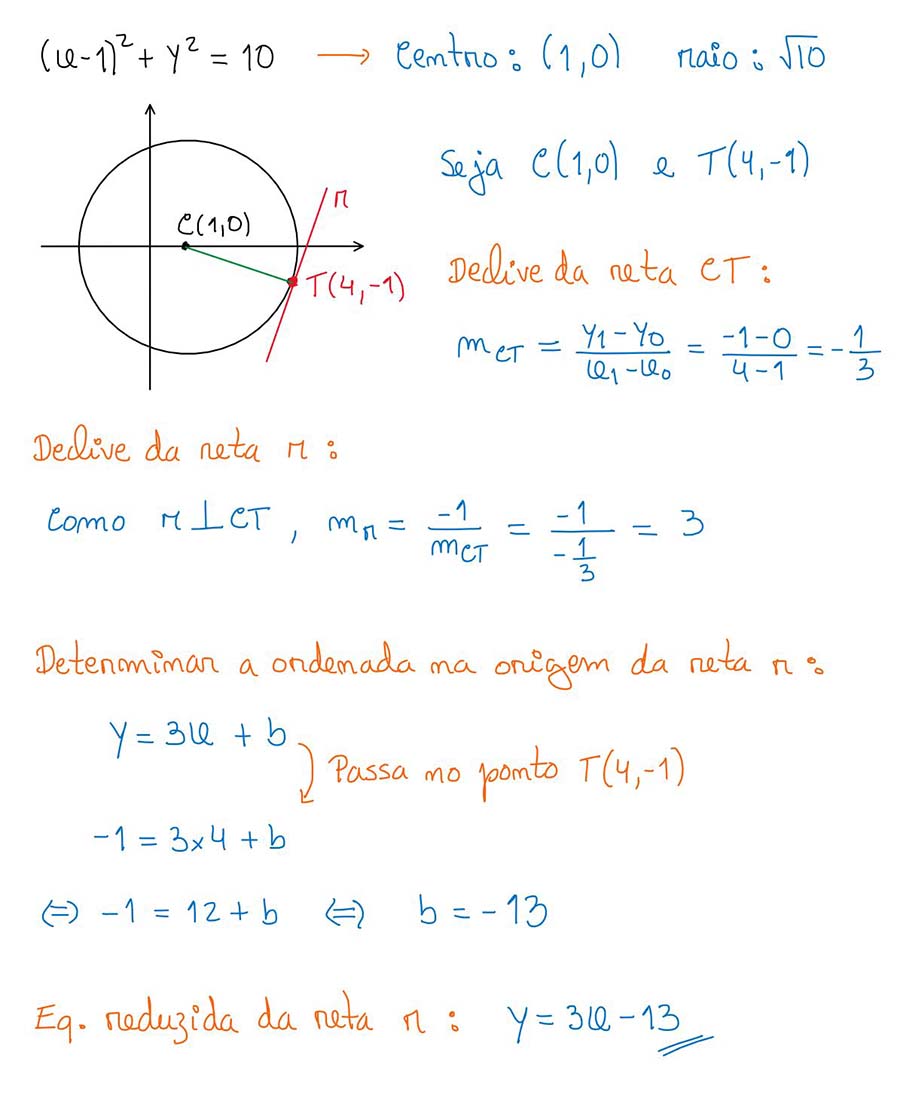 (x-1)² + y² = 10 → Centro: (1,0) raio: √10
Seja C(1,0) e T(4,-1)
C(1,0)
r
T(4,-1)
Declive da reta CT:
m_CT = (y₁-y₀)/(x₁-x₀) = (-1-0)/(4-1) = -1/3
Declive da reta r:
Como r ⊥ CT, m_r = -1/m_CT = -1/(-1/3) = 3
Determinar a ordenada na origem da reta r:
y = 3x + b
Passa no ponto T(4,-1)
-1 = 3×4 + b
⇔ -1 = 12 + b ⇔ b = -13
Eq. reduzida da reta r: y = 3x - 13